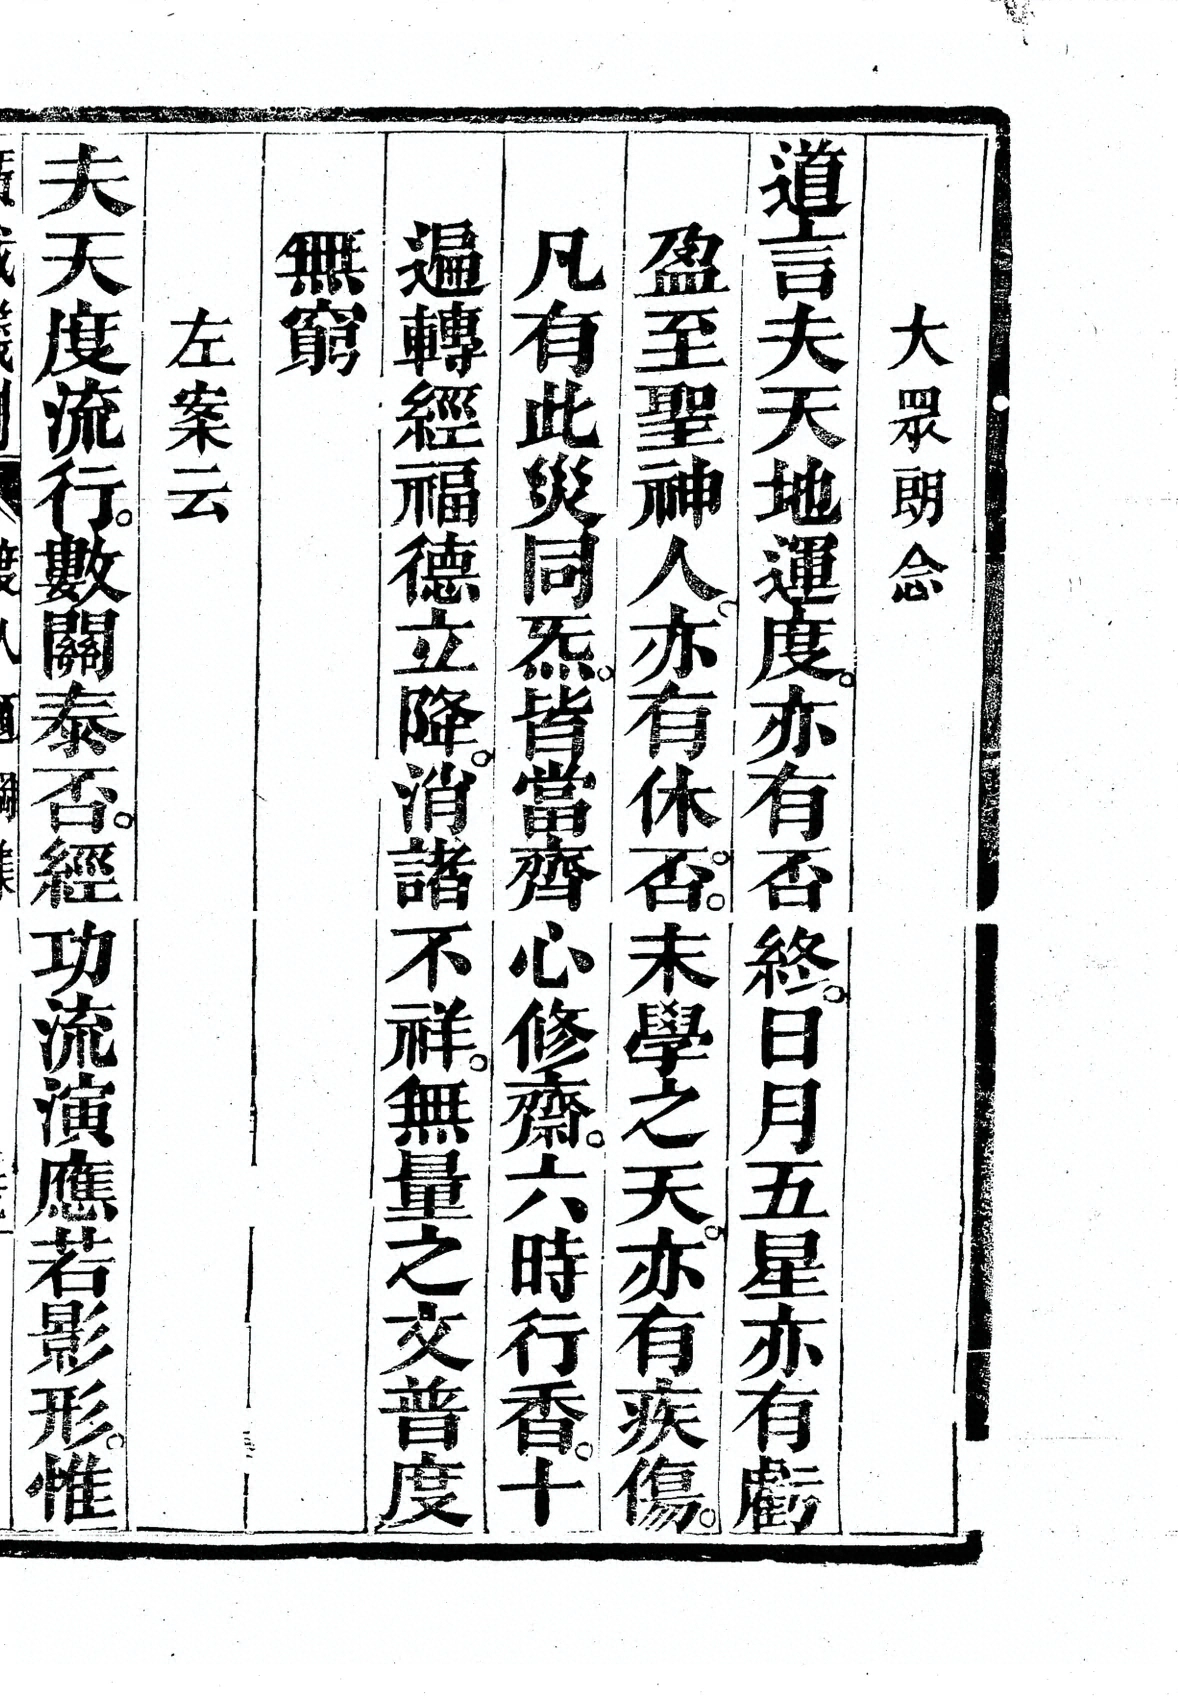 大眾朗念
道言夫天地運度。亦有否終。日月五星亦有虧
盈至聖神人。亦有休否。末學之天。亦有疾傷。
凡有此災同炁。皆當齊心修齋。六時行香。十
遍轉經福德立降。消諸不祥。無量之文普度
無窮
左案云
夫天度流行。數關泰否。經功流演應若影形。惟